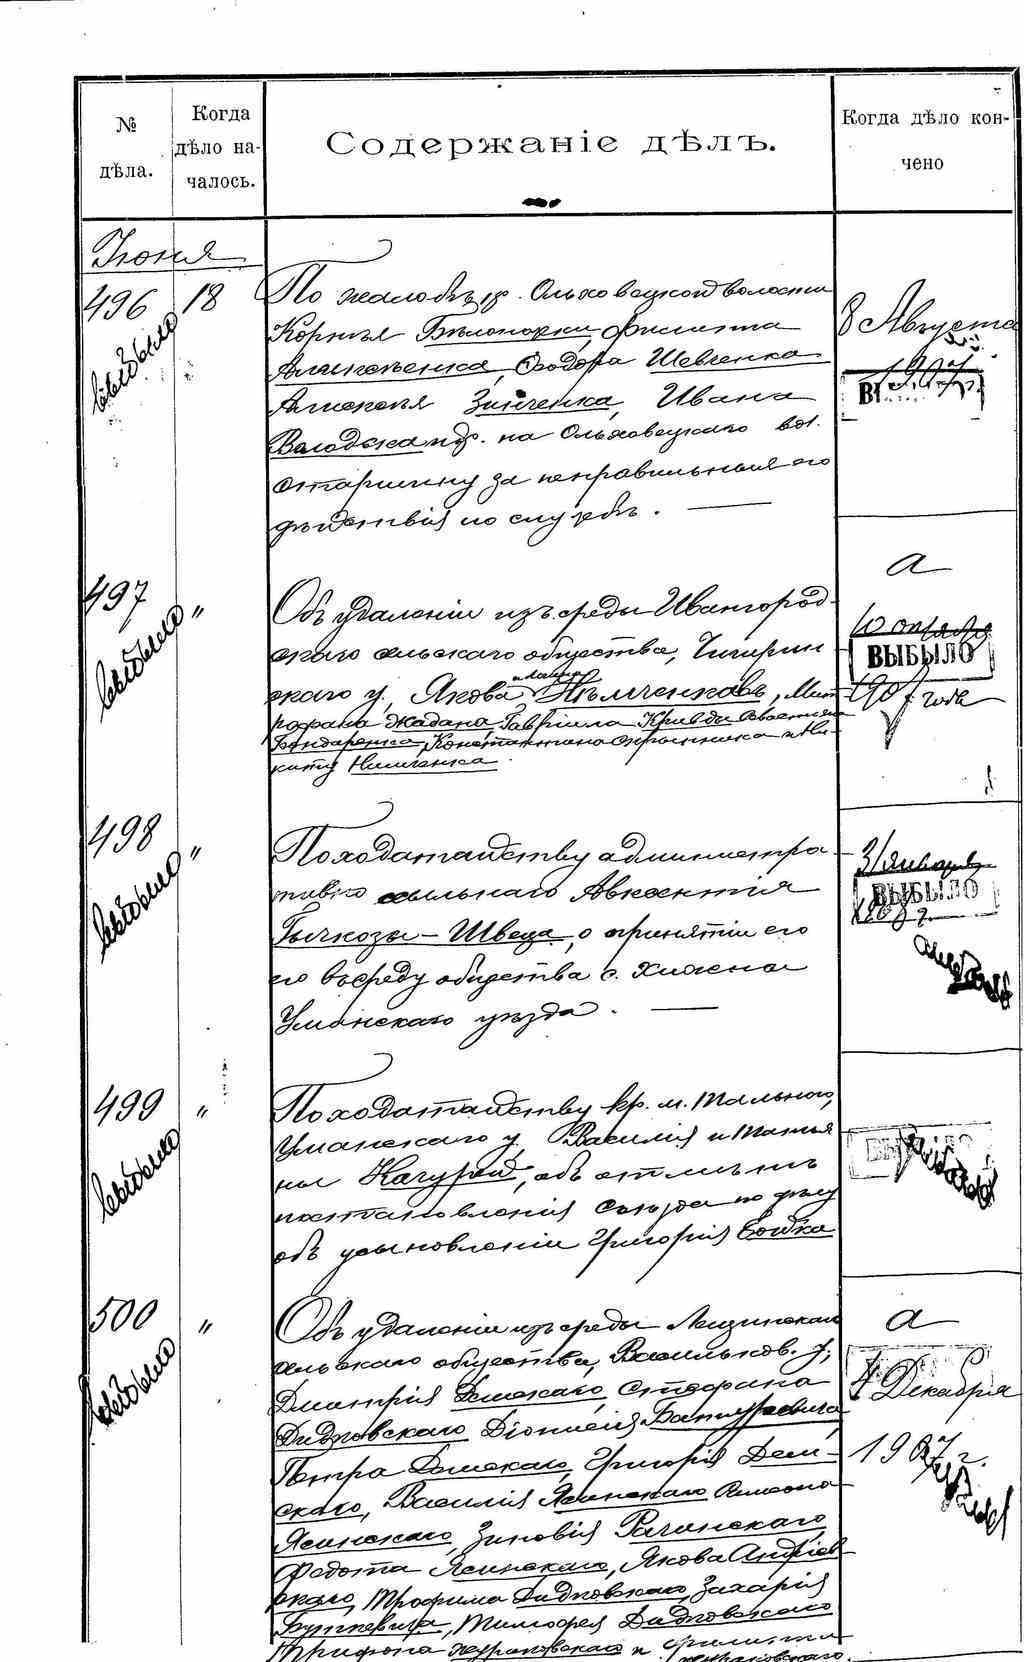 № дѣла.
Когда дѣло на-
чалось.
Содержаніе дѣлъ.
Когда дѣло кон-
чено
Іюня
496 18 По жалобѣ кр. Ольховецкой волости
Корнѣя Бѣлопорки, Филиппа
Алексѣенка, Ѳеодора Шевченка
Алексѣя Зинченка, Ивана
на Ольховецкаго вол.
старшину за неправильныя его
дѣйствія по службѣ.
8 Августа
1907
выбыло
497 " Объ удаленіи изъ среды Ивангород-
скаго сельскаго общества, Чигирин
скаго у, Якова Нѣмченковъ, Мит
рофана Жадана, Гавріила Кривди
Бондаренка, Константина и Ни-
киту
а
ВЫБЫЛО
190 года
выбыло
498 " По ходатайству администра
ссыльнаго Авксентія
Гычкозы - Швеца, о принятіи его
въ среду общества с. Хижны
Уманскаго уѣзда.
31 января
ВЫБЫЛО
выбыло
499 " По ходатайству кр. м. Тальнаго,
Уманскаго у, Василія и Татья
ны Качурой, объ отмѣнѣ
постановленія съѣзда по дѣлу
объ усыновленіи Григорія Бойка
выбыло
500 " Объ удаленіи изъ среды
сельскаго общества, Васильков. у,
Дмитрія Стефана
Дидковскаго Діонисія
Петра Григорія
скаго, Василія Ясинскаго
Ясинскаго, Зиновія Рачинскаго,
Федота Ясинскаго, Якова Андріев
скаго, Трофима Дидковскаго, Захарія
Буткевича, Тимофея Дидковскаго
Трифона и
а
4 Декабря
1907 г.
выбыло